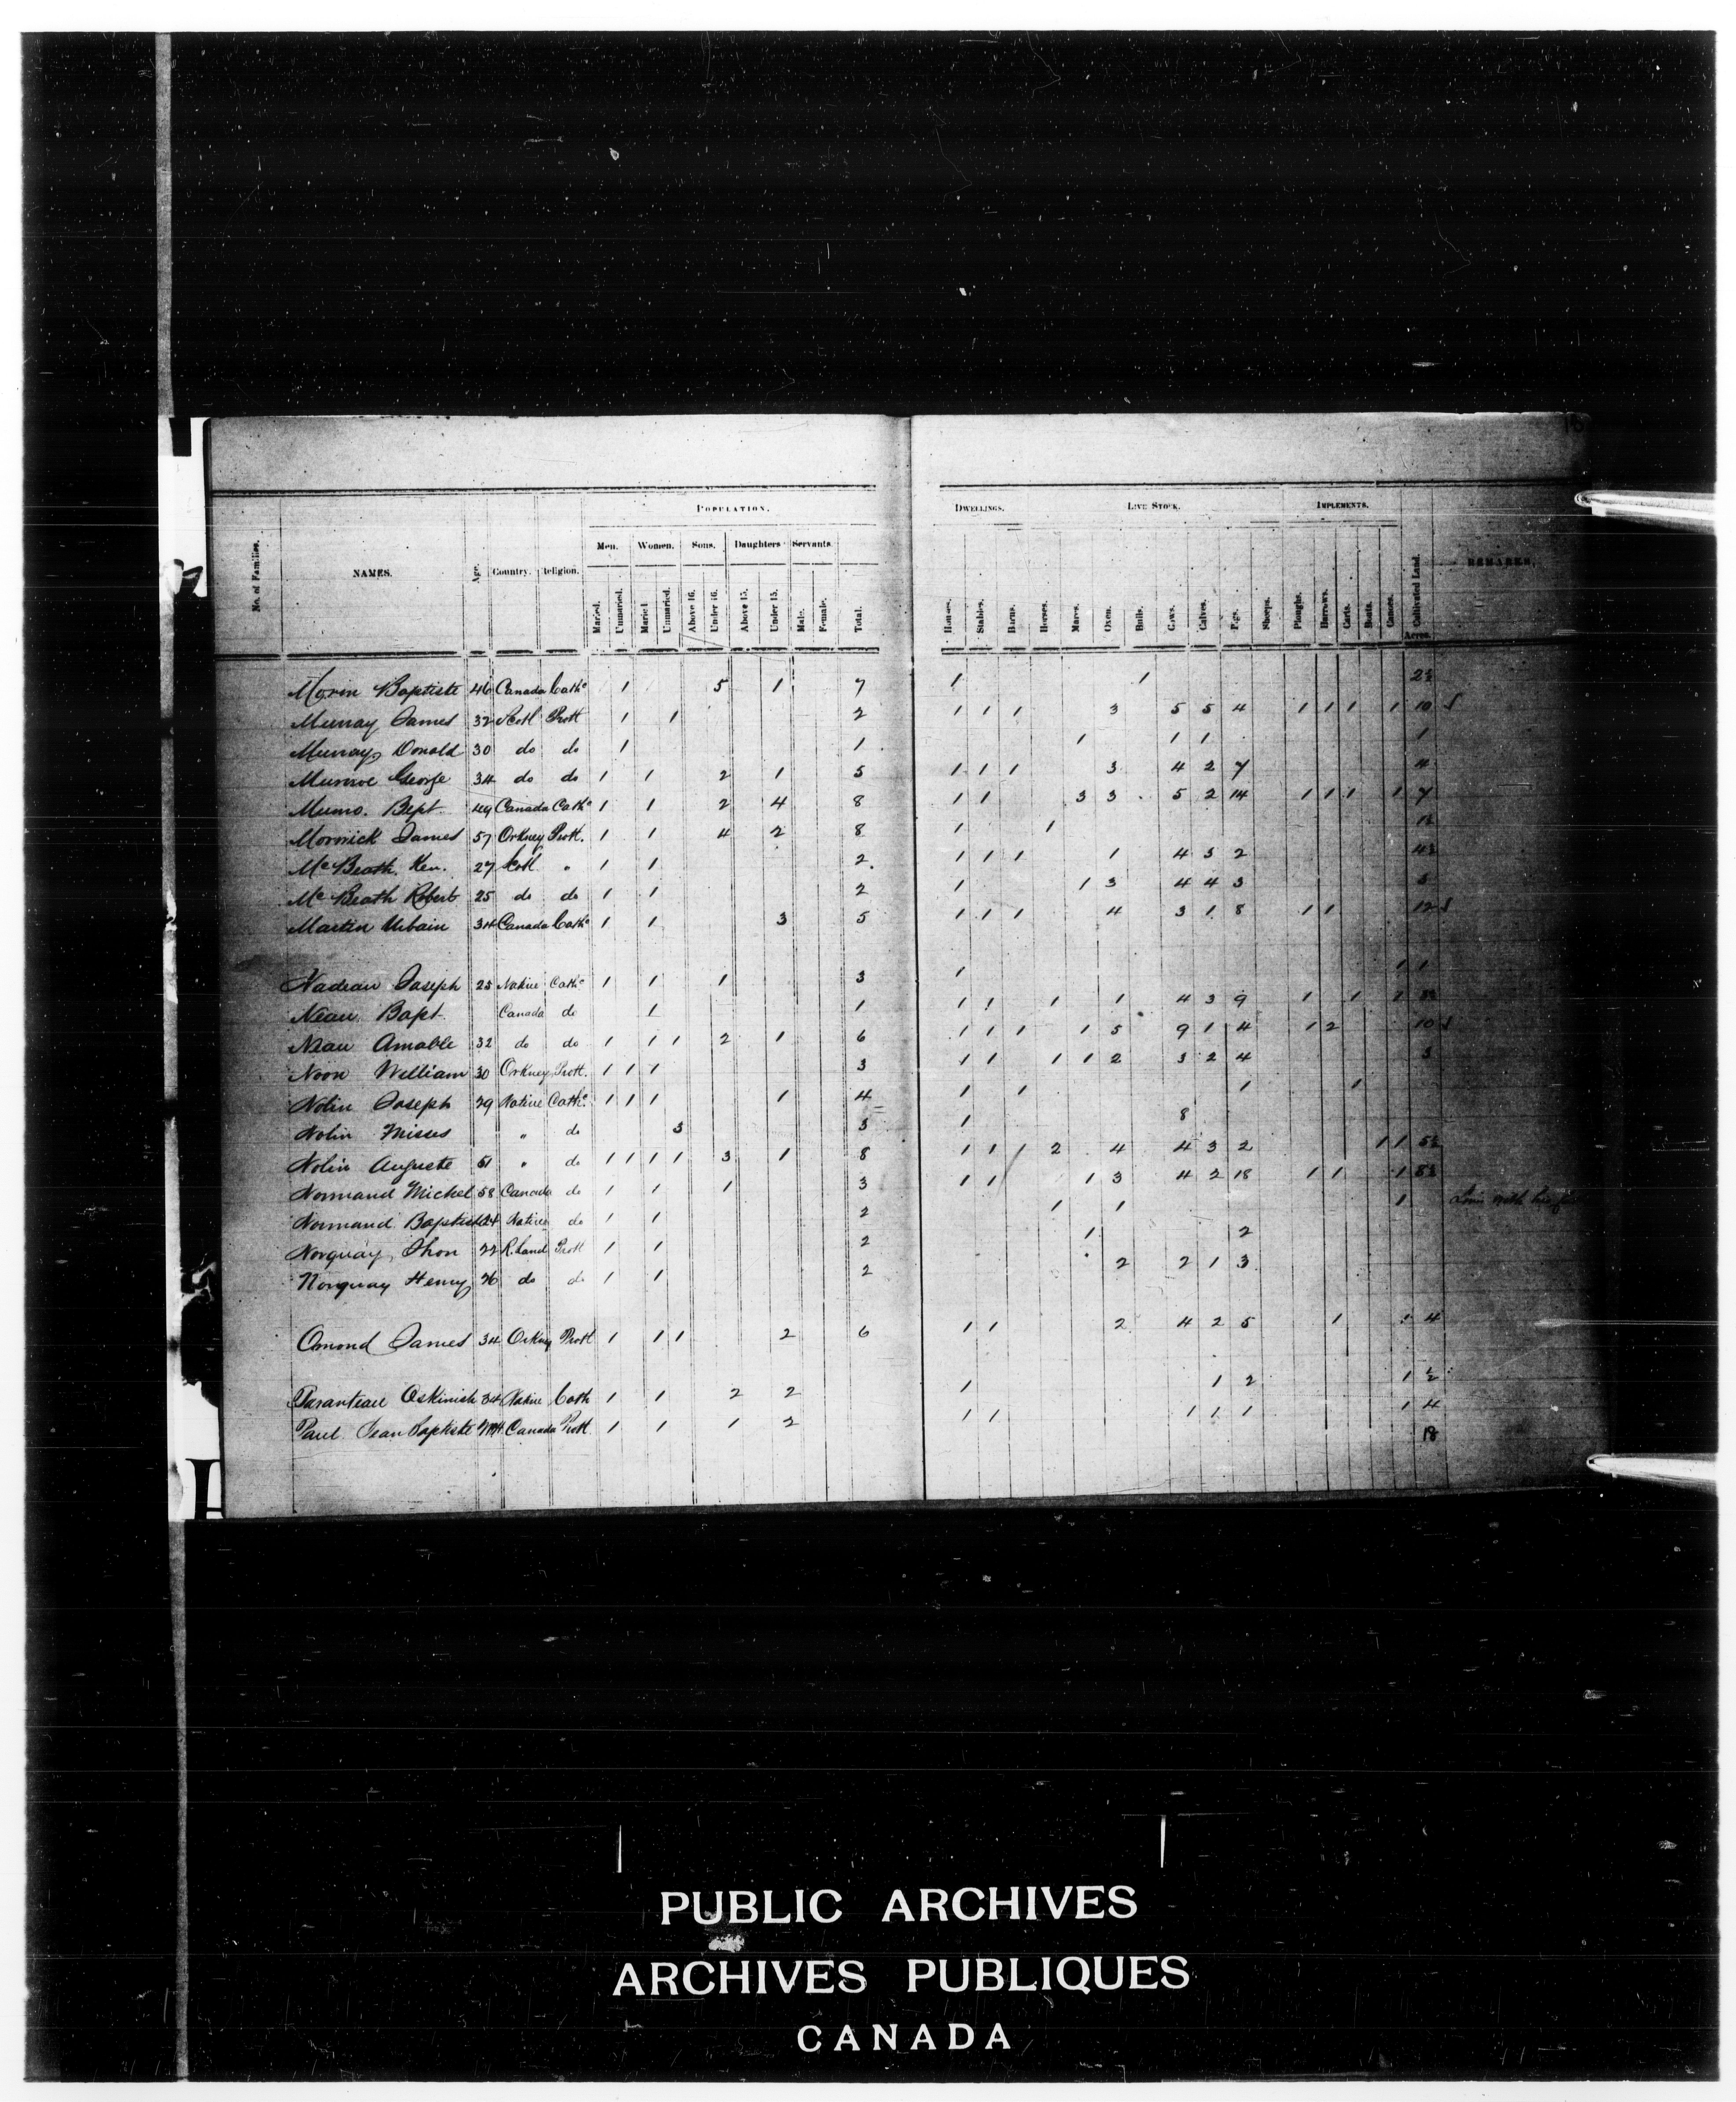 18
POPULATION.
DWELLINGS. LIVE STOCK. IMPLEMENTS.
Men. Women. Sons. Daughters Servants.
No. of Families. NAMES. Age. Country. Religion. Married. Unmarried. Married Unmarried. Above 16. Under 16. Above 15. Under 15. Male. Female. Total. Houses. Stables. Barns. Horses. Mares. Oxen. Bulls. Cows. Calves. Pigs. Sheeps. Ploughs. Harrows. Carts. Boats. Canoes. Cultivated Land. REMARKS.
Acres.
Morin Baptiste 46 Canada Cathc 1 5 1 7 1 1 2½
Murray James 32 Scotl Prott 1 1 2 1 1 1 3 5 5 4 1 1 1 1 10
Murray Donald 30 do do 1 1 1 1 1 1
Munroe George 34 do do 1 1 2 1 5 1 1 1 3 4 2 7 4
Munro. Bept. 49 Canada Cathc 1 1 2 4 8 1 1 3 3 5 2 14 1 1 1 1 7
Morwick James 57 Orkney Prott. 1 1 4 2 8 1 1 1½
Mc Beath. Ken. 27 Scotl " 1 1 2. 1 1 1 1 4 3 2 4½
Mc Beath Robert 25 do do 1 1 2 1 1 3 4 4 3 5
Martin Urbain 34 Canada Cathc 1 1 3 5 1 1 1 4 3 1 8 1 1 12
Nadeau Joseph 25 Native Cathc 1 1 1 3 1 1 1
Neau Bapt. Canada do 1 1 1 1 1 1 4 3 9 1 1 1
Neau Amable 32 do do 1 1 1 2 1 6 1 1 1 1 5 9 1 4 1 2 10
Noon William 30 Orkney Prott. 1 1 1 3 1 1 1 1 2 3 2 4 3
Nolin Joseph 29 Native Cathc 1 1 1 1 4 1 1 1 1
Nolin Misses " do 3 3 1 8
Nolin Auguste 51 " do 1 1 1 1 3 1 8 1 1 1 2 4 4 3 2 1 1 5½
Normand Michel 58 Canada do 1 1 1 3 1 1 1 3 4 2 18 1 1 1 8½
Normand Baptiste 24 Native do 1 1 2 1 1 1 with his
Norquay Jhon 22 R. Land Prott 1 1 2 1 2
Norquay Henry 26 do do 1 1 2 2 2 1 3
Omond James 34 Orkney Prott 1 1 1 2 6 1 1 2 4 2 5 1 1 4
Paranteau Oskinish 34 Native Cath 1 1 2 2 1 1 2 1 ½
Paul Jean Baptiste Canada Prott. 1 1 1 2 1 1 1 1 1 1 4
18
PUBLIC ARCHIVES
ARCHIVES PUBLIQUES
CANADA